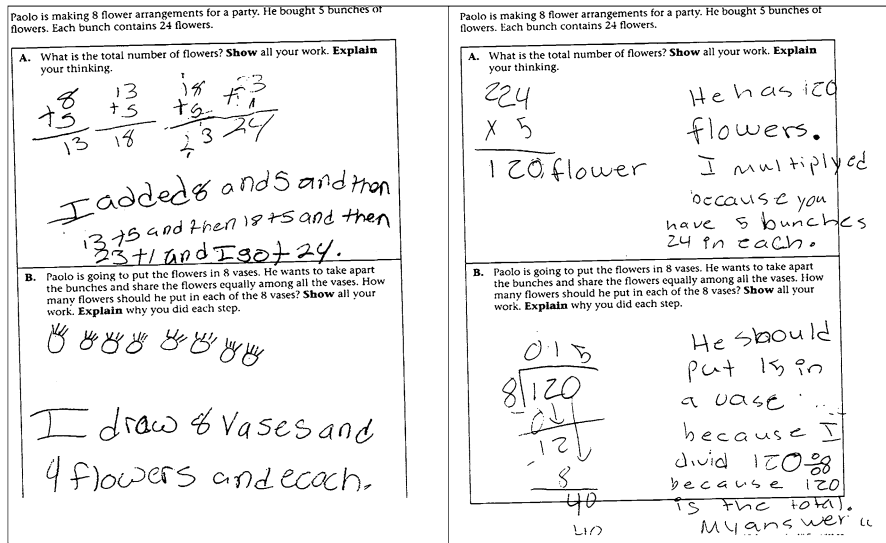 Paolo is making 8 flower arrangements for a party. He bought 5 bunches of
flowers. Each bunch contains 24 flowers.
A. What is the total number of flowers? Show all your work. Explain
your thinking.
8 13 18
+5 +5 +5
13 18 23 24
I added 8 and 5 and then
13 +5 and then 18 +5 and then
23 +1 and I got 24.
B. Paolo is going to put the flowers in 8 vases. He wants to take apart
the bunches and share the flowers equally among all the vases. How
many flowers should he put in each of the 8 vases? Show all your
work. Explain why you did each step.
I draw 8 vases and
4 flowers and ecach.
Paolo is making 8 flower arrangements for a party. He bought 5 bunches of
flowers. Each bunch contains 24 flowers.
A. What is the total number of flowers? Show all your work. Explain
your thinking.
224
X 5
120 flower
He has 120
flowers.
I multiplyed
because you
have 5 bunches
24 in each.
B. Paolo is going to put the flowers in 8 vases. He wants to take apart
the bunches and share the flowers equally among all the vases. How
many flowers should he put in each of the 8 vases? Show all your
work. Explain why you did each step.
015
8 120
0
12
- 8
40
40
He should
put 15 in
a vase
because I
divid 120 ÷ 8
because 120
is the total.
My answer